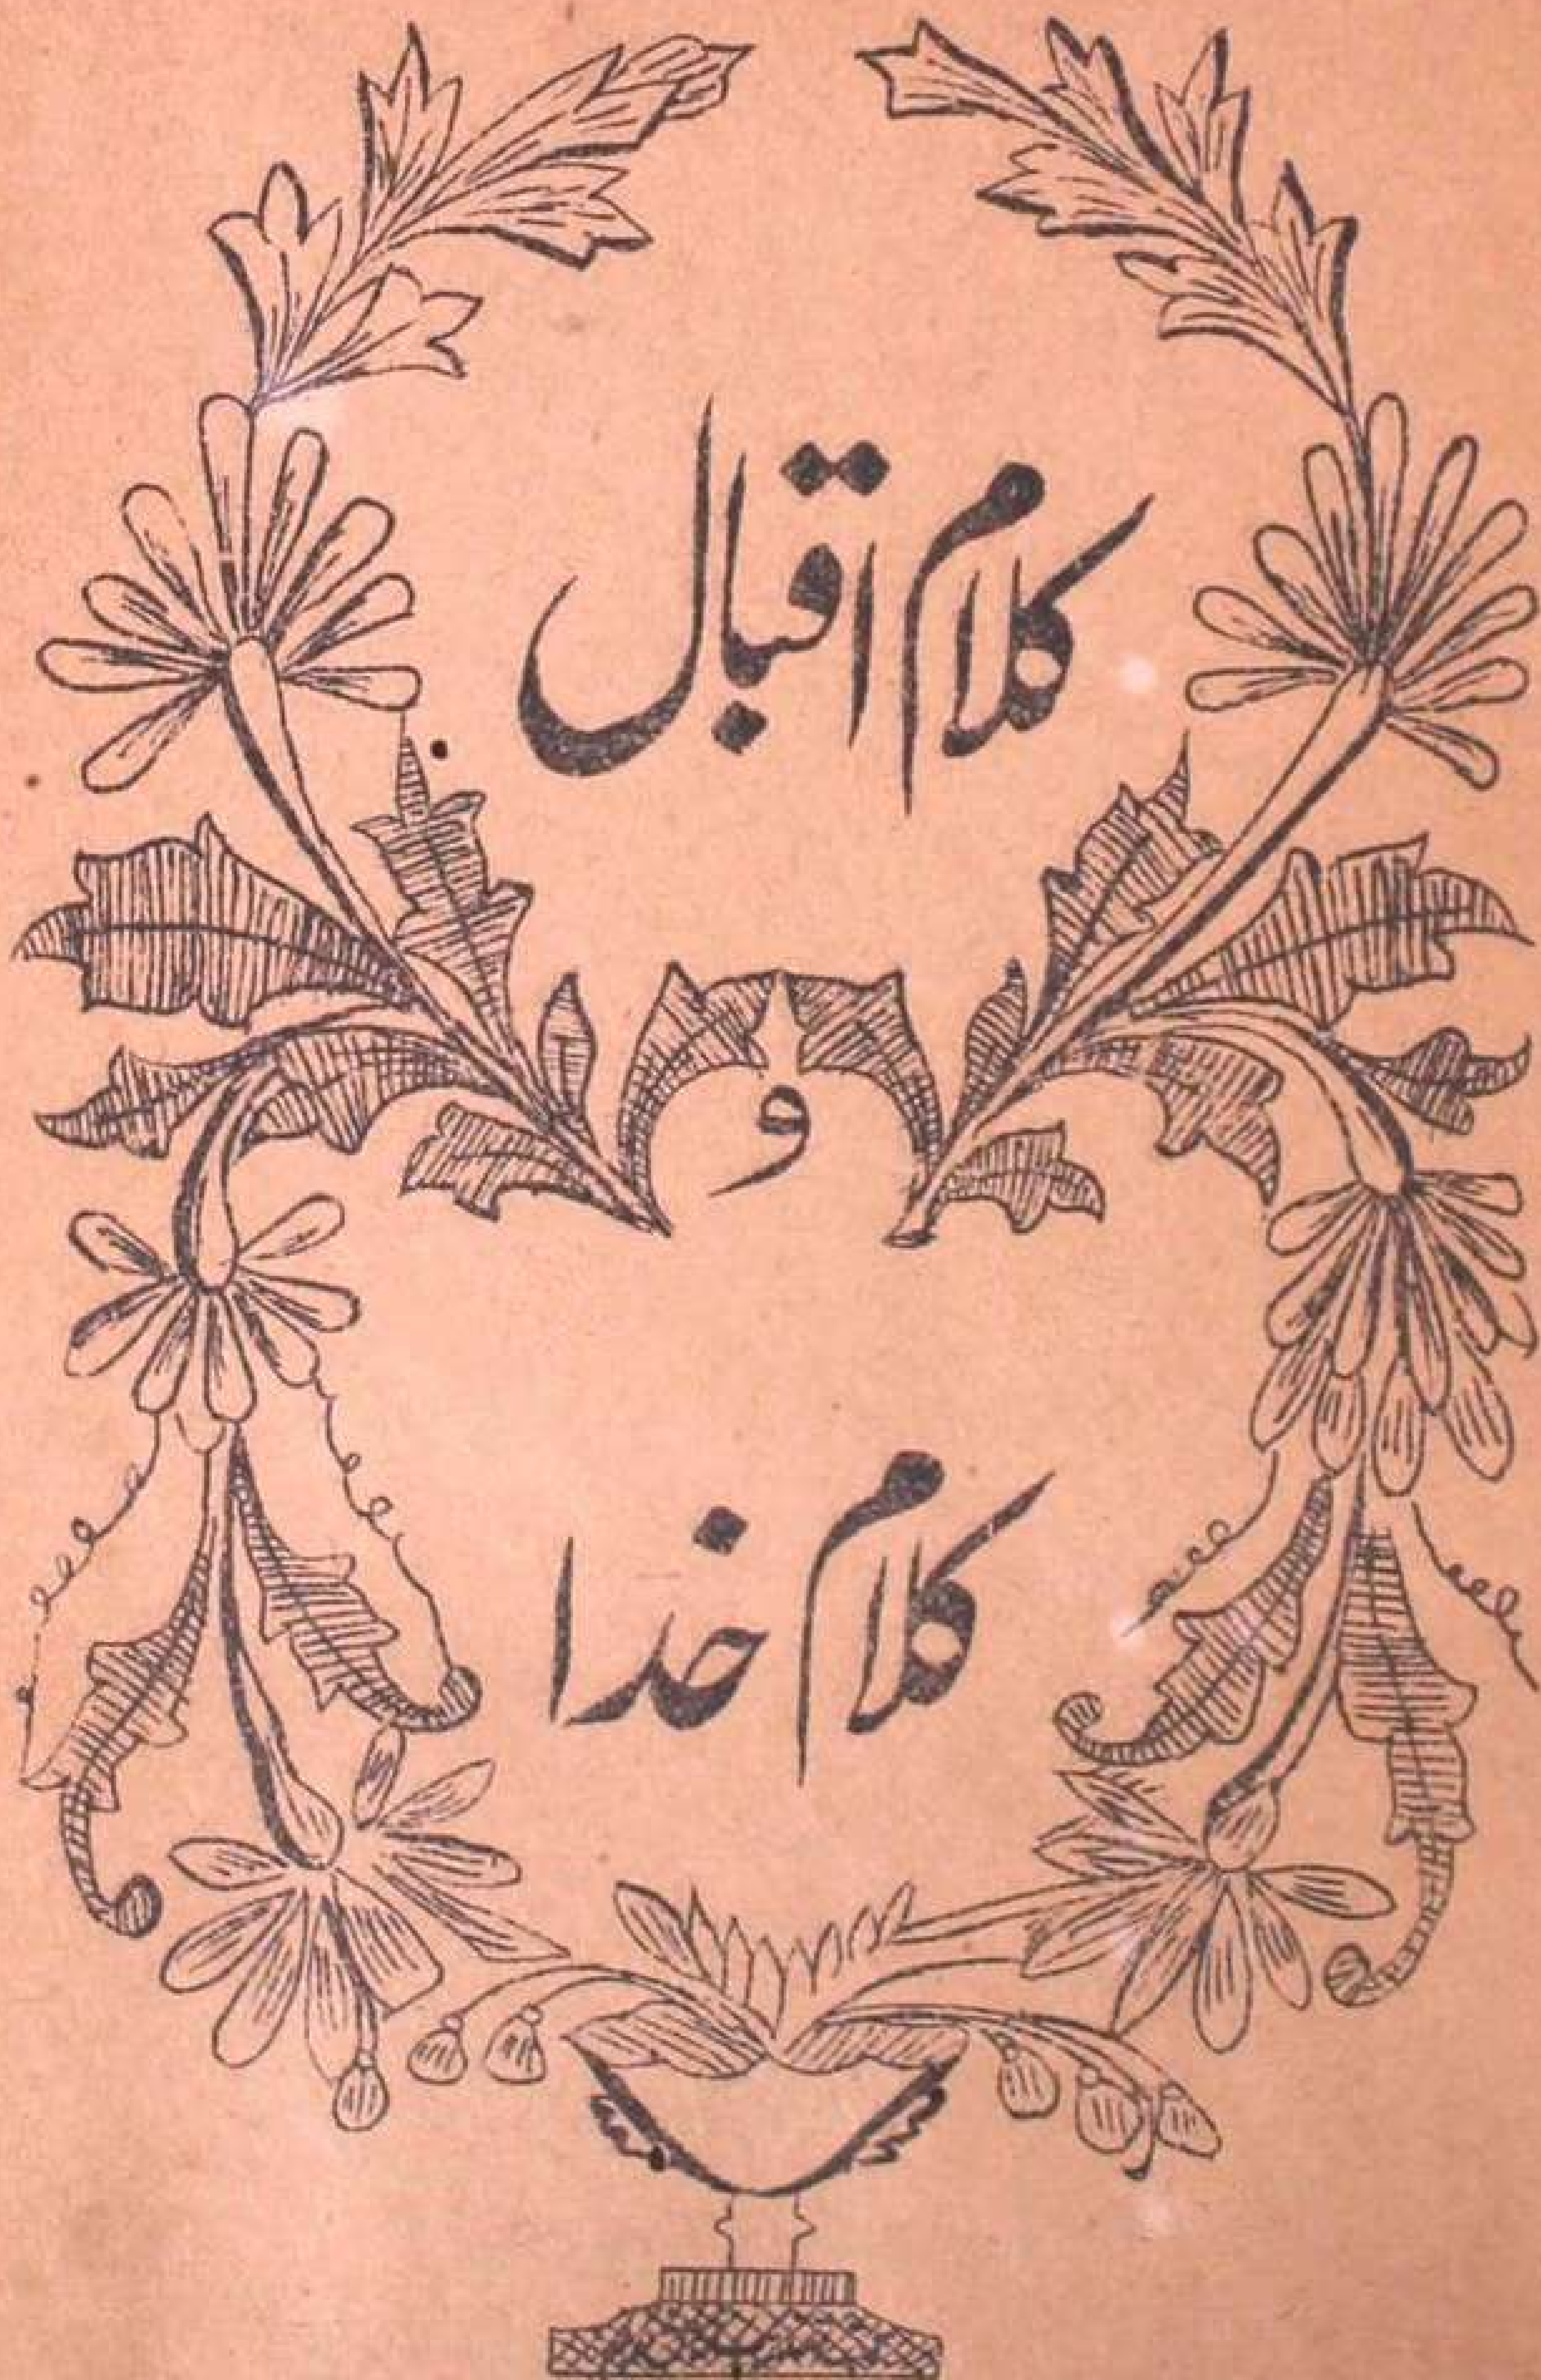 کلام اقبال
و
کلام خدا